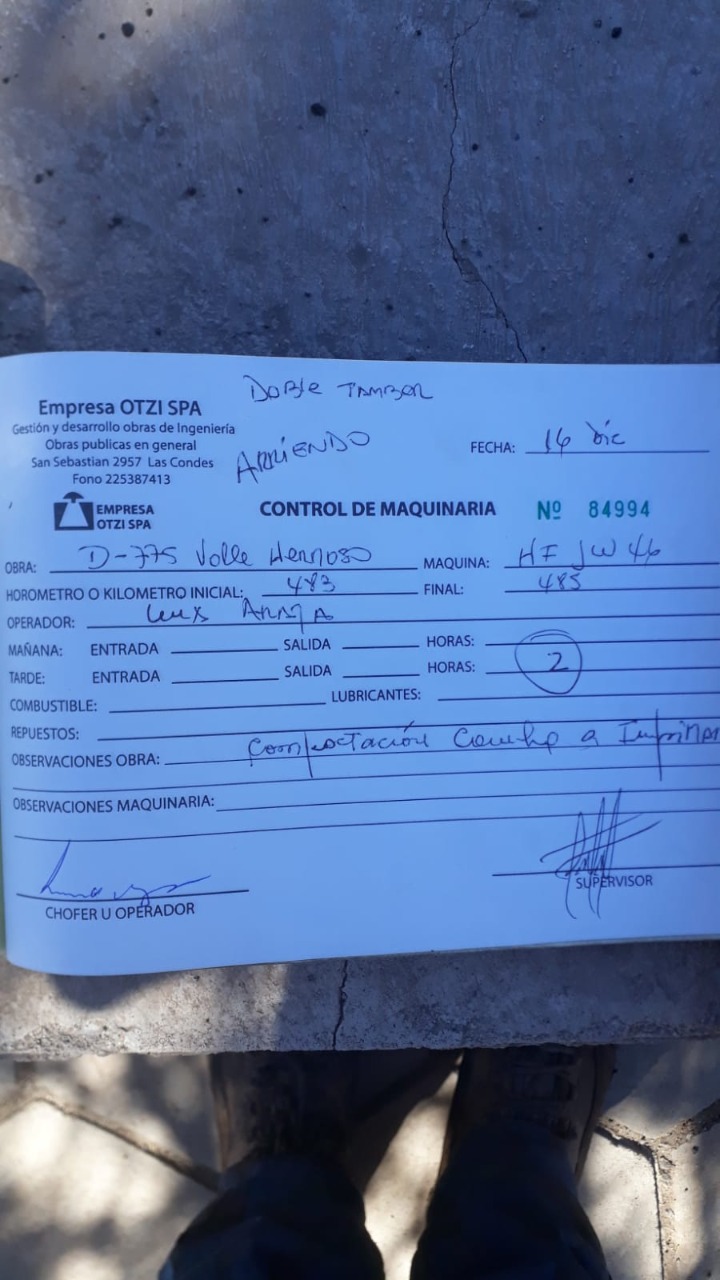 DOBLE TAMBOR
Empresa OTZI SPA
Gestión y desarrollo obras de Ingeniería
Obras publicas en general
San Sebastian 2957 Las Condes
Fono 225387413
ARRIENDO
FECHA: 16 Dic
EMPRESA
OTZI SPA
CONTROL DE MAQUINARIA Nº 84994
OBRA: D-775 Valle Hermoso MAQUINA: HF JW 46
HOROMETRO O KILOMETRO INICIAL: 483 FINAL: 485
OPERADOR: Luis Araya
MAÑANA: ENTRADA SALIDA HORAS:
TARDE: ENTRADA SALIDA HORAS: 2
COMBUSTIBLE: LUBRICANTES:
REPUESTOS:
OBSERVACIONES OBRA: Compactación Cancha a Imprimar
OBSERVACIONES MAQUINARIA:
CHOFER U OPERADOR
SUPERVISOR